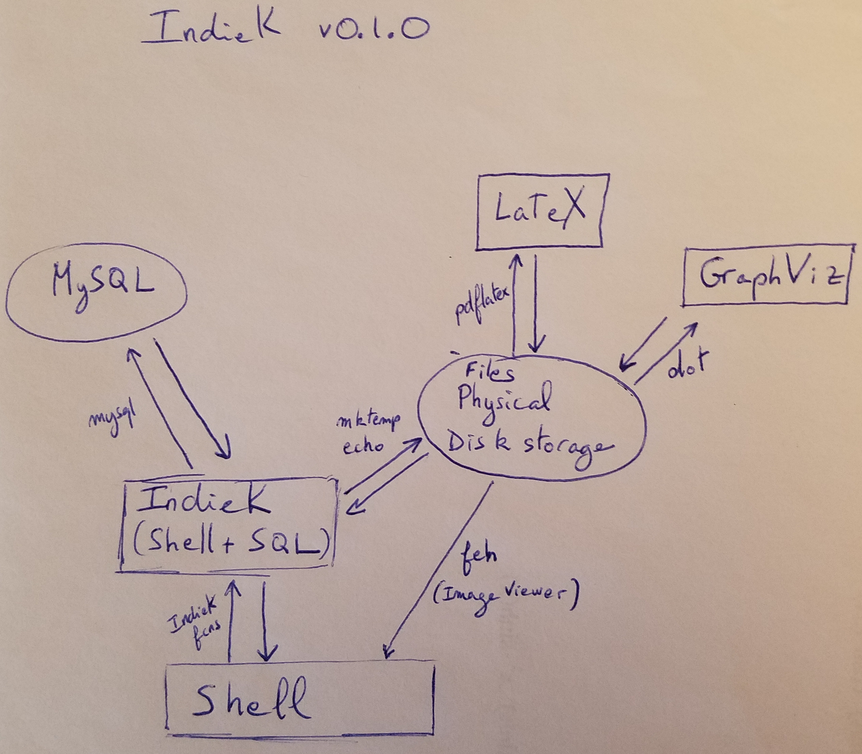 IndieK v0.1.0
LaTeX
MySQL
GraphViz
pdflatex
dot
Files
Physical
Disk storage
mysql
mktemp
echo
IndieK
(Shell + SQL)
feh
(Image Viewer)
IndieK
fcns
Shell